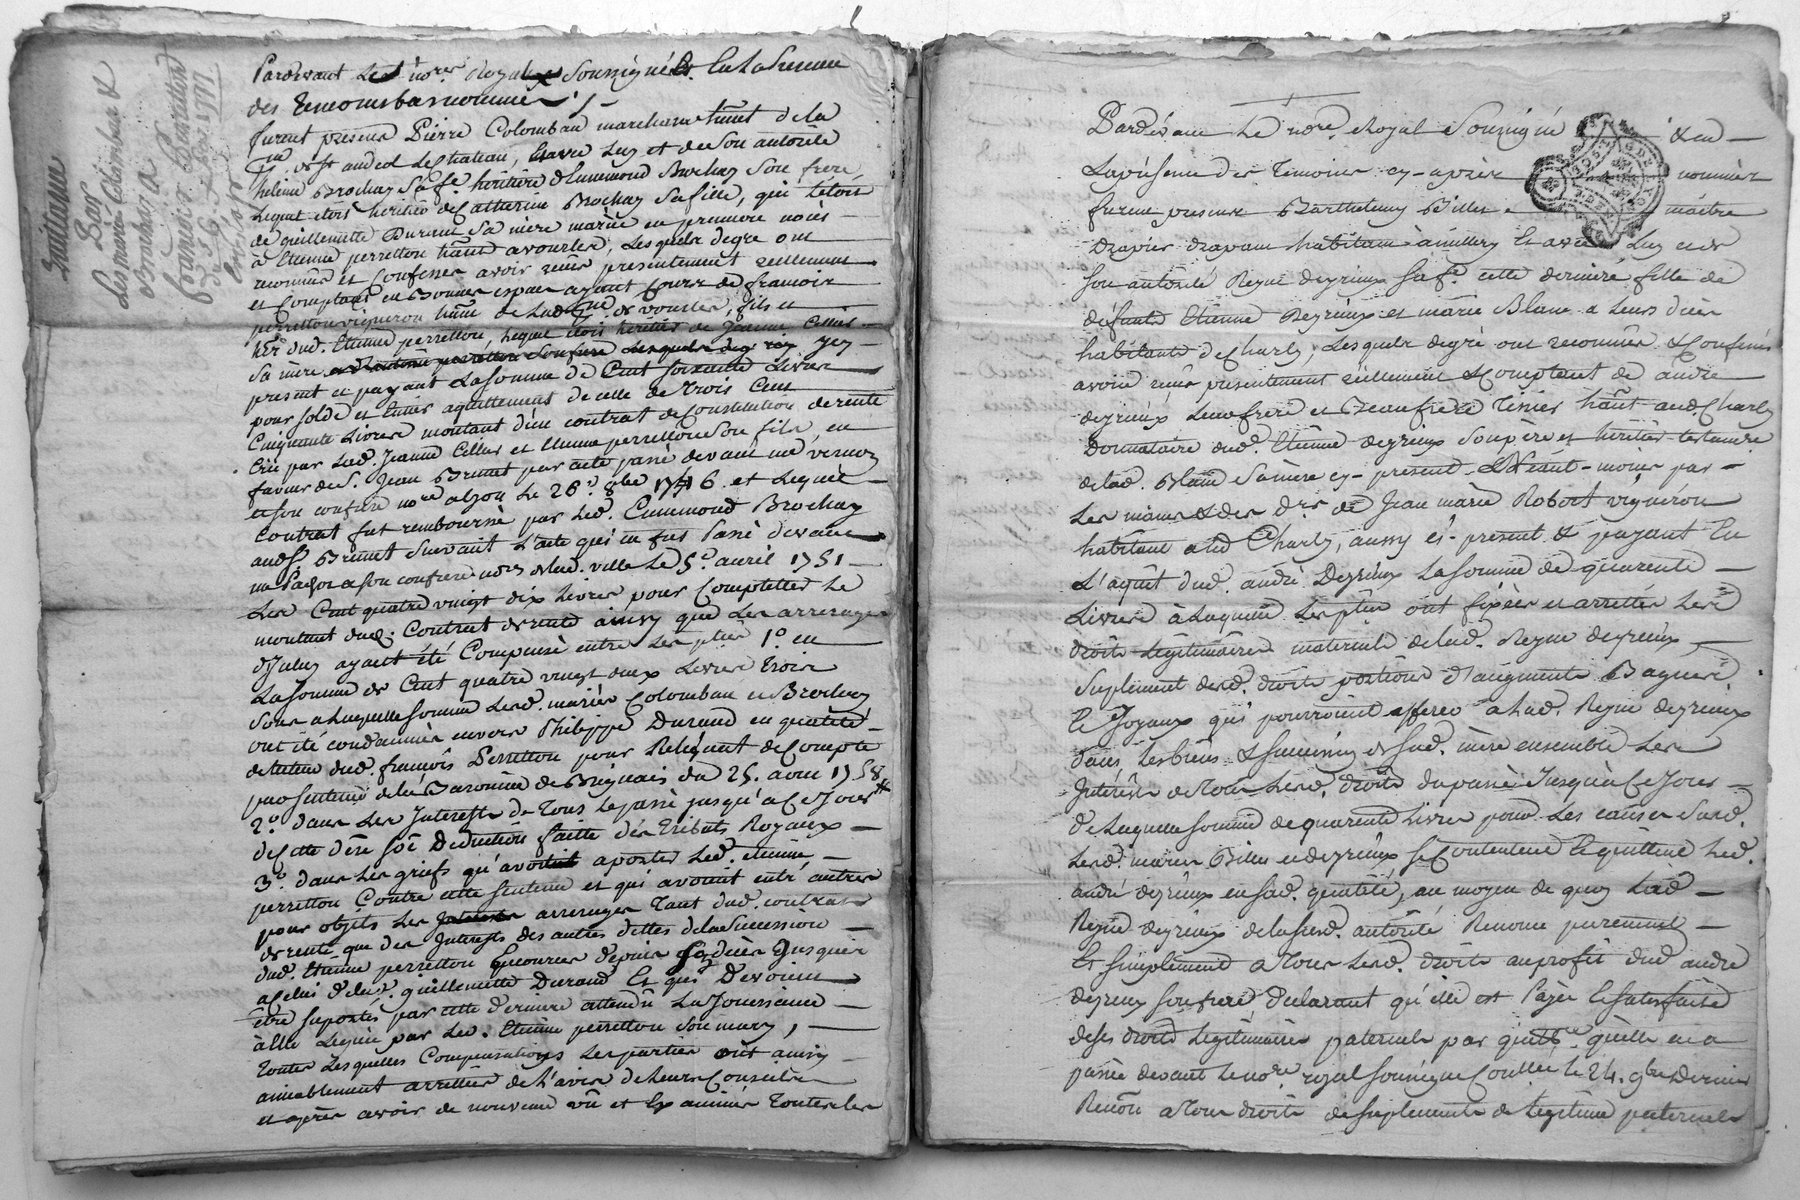 quittance
Par
Les mariés Colomban &
Brochay à
françois Perretton
du 6 Xbre 1777
Pardevant Les nores Royaux Soussignés En La presence
des Temoins bas nommés
furent presens Pierre Colomban marchand hânt de la
de st andeol Le chateau, Et avec Luy et de Son autorité
helenne Brochay Sa fe heritiere d'Ennemond Brochay Son frere,
Lequel étois heritier de Catherine Brochay Sa fille, qui L'étois
de guillemette Durand Sa mère mariée en premiere noces
à Etienne perretton hânt a vourles, Lesquels de gré ont
reconnus et Confessé avoir reçus presentement reellement
et Comptant en Bonnes especes ayant Cours de francois
perretton vigneron hânt de Lad. de vourles, fils et
hér dud. Etienne perretton, lequel étois heritier de Jeanne Cellier
Sa mere, icy
present et payant La somme de Cent soixante Livres
pour solde et Entier aquittement de celle de trois Cent
Cinquante Livres montant d'un contrat de Constitution de rente
Créé par Lad. Jeanne Cellier et Etienne perretton Son fils, en
faveur de S. Jean Brunet par acte passé devant me vernon
et son confrere nore a Lyon Le 26e 8bre 1746 et Lequel
Contrat fut remboursé par Led. Ennemond Brochay
aud S. Brunet Suivant L'acte qui en fut Passé devant
me et son confrere nores de Lad. ville Le 5e avril 1751
Les Cent quatre vingt dix Livres pour Completter Le
montant dud. Contrat de rente ainsy que Les arrerages
d'Iceluy ayant été Compensé entre Les pties 1o en
La somme de Cent quatre vingt deux Livres trois
Sous a Laquelle Somme Lesd. mariés Colomban et Brochay
ont été condamnés envers Philippe Durand en qualité
de tuteur dud. françois Perretton pour Reliquat de Compte
par Sentence de la Baronnie de Brignais du 25. aout 1758
2o dans Les Interests de tous Le passé jusqu'a Ce Jour
de Cette dere soe Deduction faitte des Tributs Royaux
3o dans Les griefs qu'avoit a porter Led. etienne
perretton Contre cette Sentence et qui avoient entr'autres
pour objets Les arrerages Tant dud. contrat
de rente que des Interests des autres dettes de la Succession
dud. Etienne perretton Encourues depuis Son Décès Jusques
a Celui de lad. guillemette Durand Et qui Devoient
être suportés par cette derniere attendu La Jouissance
à Elle Leguée par Led. Etienne perretton Son mary,
toutes Lesquelles Compensations Les parties ont ainsy
amiablement arrettées de L'avis de Leurs Conseils
et après avoir de nouveau vû et Examiner toutes Les
Pardevant Le nore Royal Soussigné & en
La présence des Temoins cy-après nommés
furent presens Barthelemy Billet maitre
Drapier drapant habitant à millery Et avec Luy et de
Son autorité Reyne deyrieux Sa fe. cette derniere fille de
defunts Etienne Deyrieux et marie Blanc a Leurs décès
habitants de Charly, Lesquels de gré ont reconnus & Confessés
avoir reçus presentement réellement & Comptant de andré
deyrieux Leur frere et Beaufrere hânt aud. Charly
Donnataire dud. Etienne deyrieux Son père et héritier testamre
de lad. Blanc Sa mère cy-present, & Néant-moins par
Les mains & des drs de Jean marie Robert vigneron
habitant aud Charly, aussy cy-present & payant En
L'aquit dud. andré Deyrieux La somme de quarente
Livres à Laquelle Les pties ont fixées et arrettés Lesd
droits Légitimaires maternels de lad. Reyne deyrieux,
Suplement desd. droits portions d'augment Bagues
& Joyaux qui pourroient afferer a Lad. Reyne deyrieux
dans Les biens & successions de sad. mère ensemble Les
Intérêts de tous Lesd. droits du passé Jusqu'à Ce Jour
De Laquelle Somme de quarente Livres pour Les causes Susd.
Lesd. mariés Billet et deyrieux se Contentent & quittent Led.
andré deyrieux en sad. qualité, au moyen de quoy Lad
Reyne deyrieux de la susd. autorité Renonce purement
Et Simplement a tous Lesd. droits au profit dud andré
deyrieux Son frere déclarant qu'elle est Payée & Satisfaitte
de ses droits Legitimaires paternels par quitce qu'elle en a
passée devant Le nore royal soussigné Le 24. 9bre Dernier
Renon a tous droits de suplements de Légitime paternels